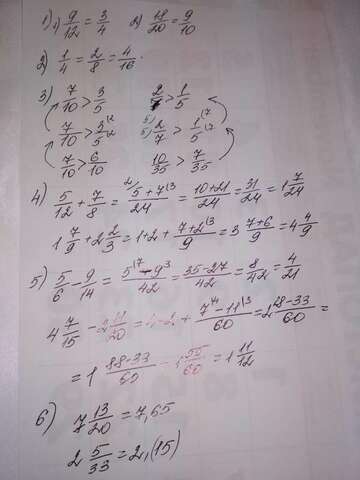 1) 1) 9/12 = 3/4 2) 18/20 = 9/10
2) 1/4 = 2/8 = 4/16.
3) 7/10 > 3/5 2/7 > 1/5
7/10 > 3/5 |2 5) 2/7 > 1/5 |7
7/10 > 6/10 10/35 > 7/35
4) 5/12 + 7/8 = 2/ 5 + 7 |3 / 24 = 10+21/24 = 31/24 = 1 7/24
1 7/9 + 2 2/3 = 1+2 + 7+2 |3 / 9 = 3 7+6/9 = 4 4/9
5) 5/6 - 9/14 = 5 |7 - 9 |3 / 42 = 35-27/42 = 8/42 = 4/21
4 7/15 - 2 11/20 = 4-2 + 7 |4 - 11 |3 / 60 = 2 28-33/60 =
= 1 88-33/60 = 1 55/60 = 1 11/12
6) 7 13/20 = 7,65
2 5/33 = 2,(15)